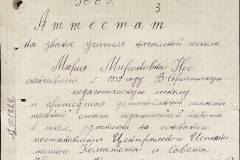 3
Аттестат
на звание учителя начальной школы.
Мария Мироновна
окончившая в 1919 году В-Сорочинскую
педагогическую школу
и прошедшая установленный
стаж педагогической работы
в школе, удостоена на основании
постановления Центрального Испол-
нительного Комитета и Совета